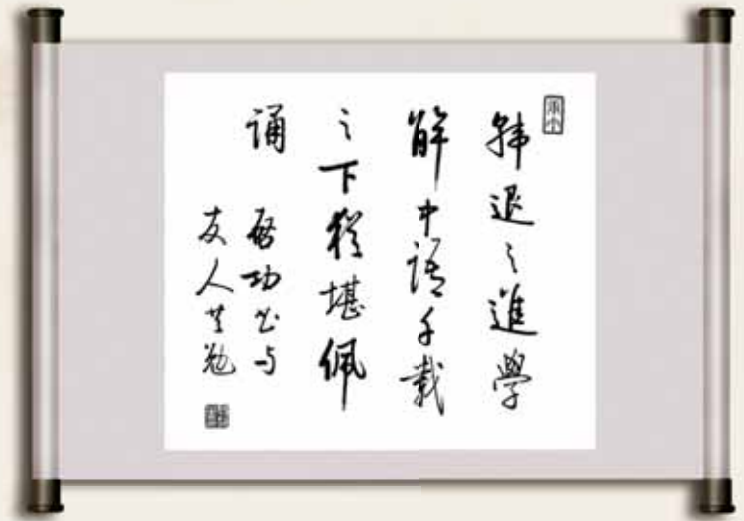 韩退之進學
解中语千载
之下犹堪佩
诵
启功书与
友人共勉